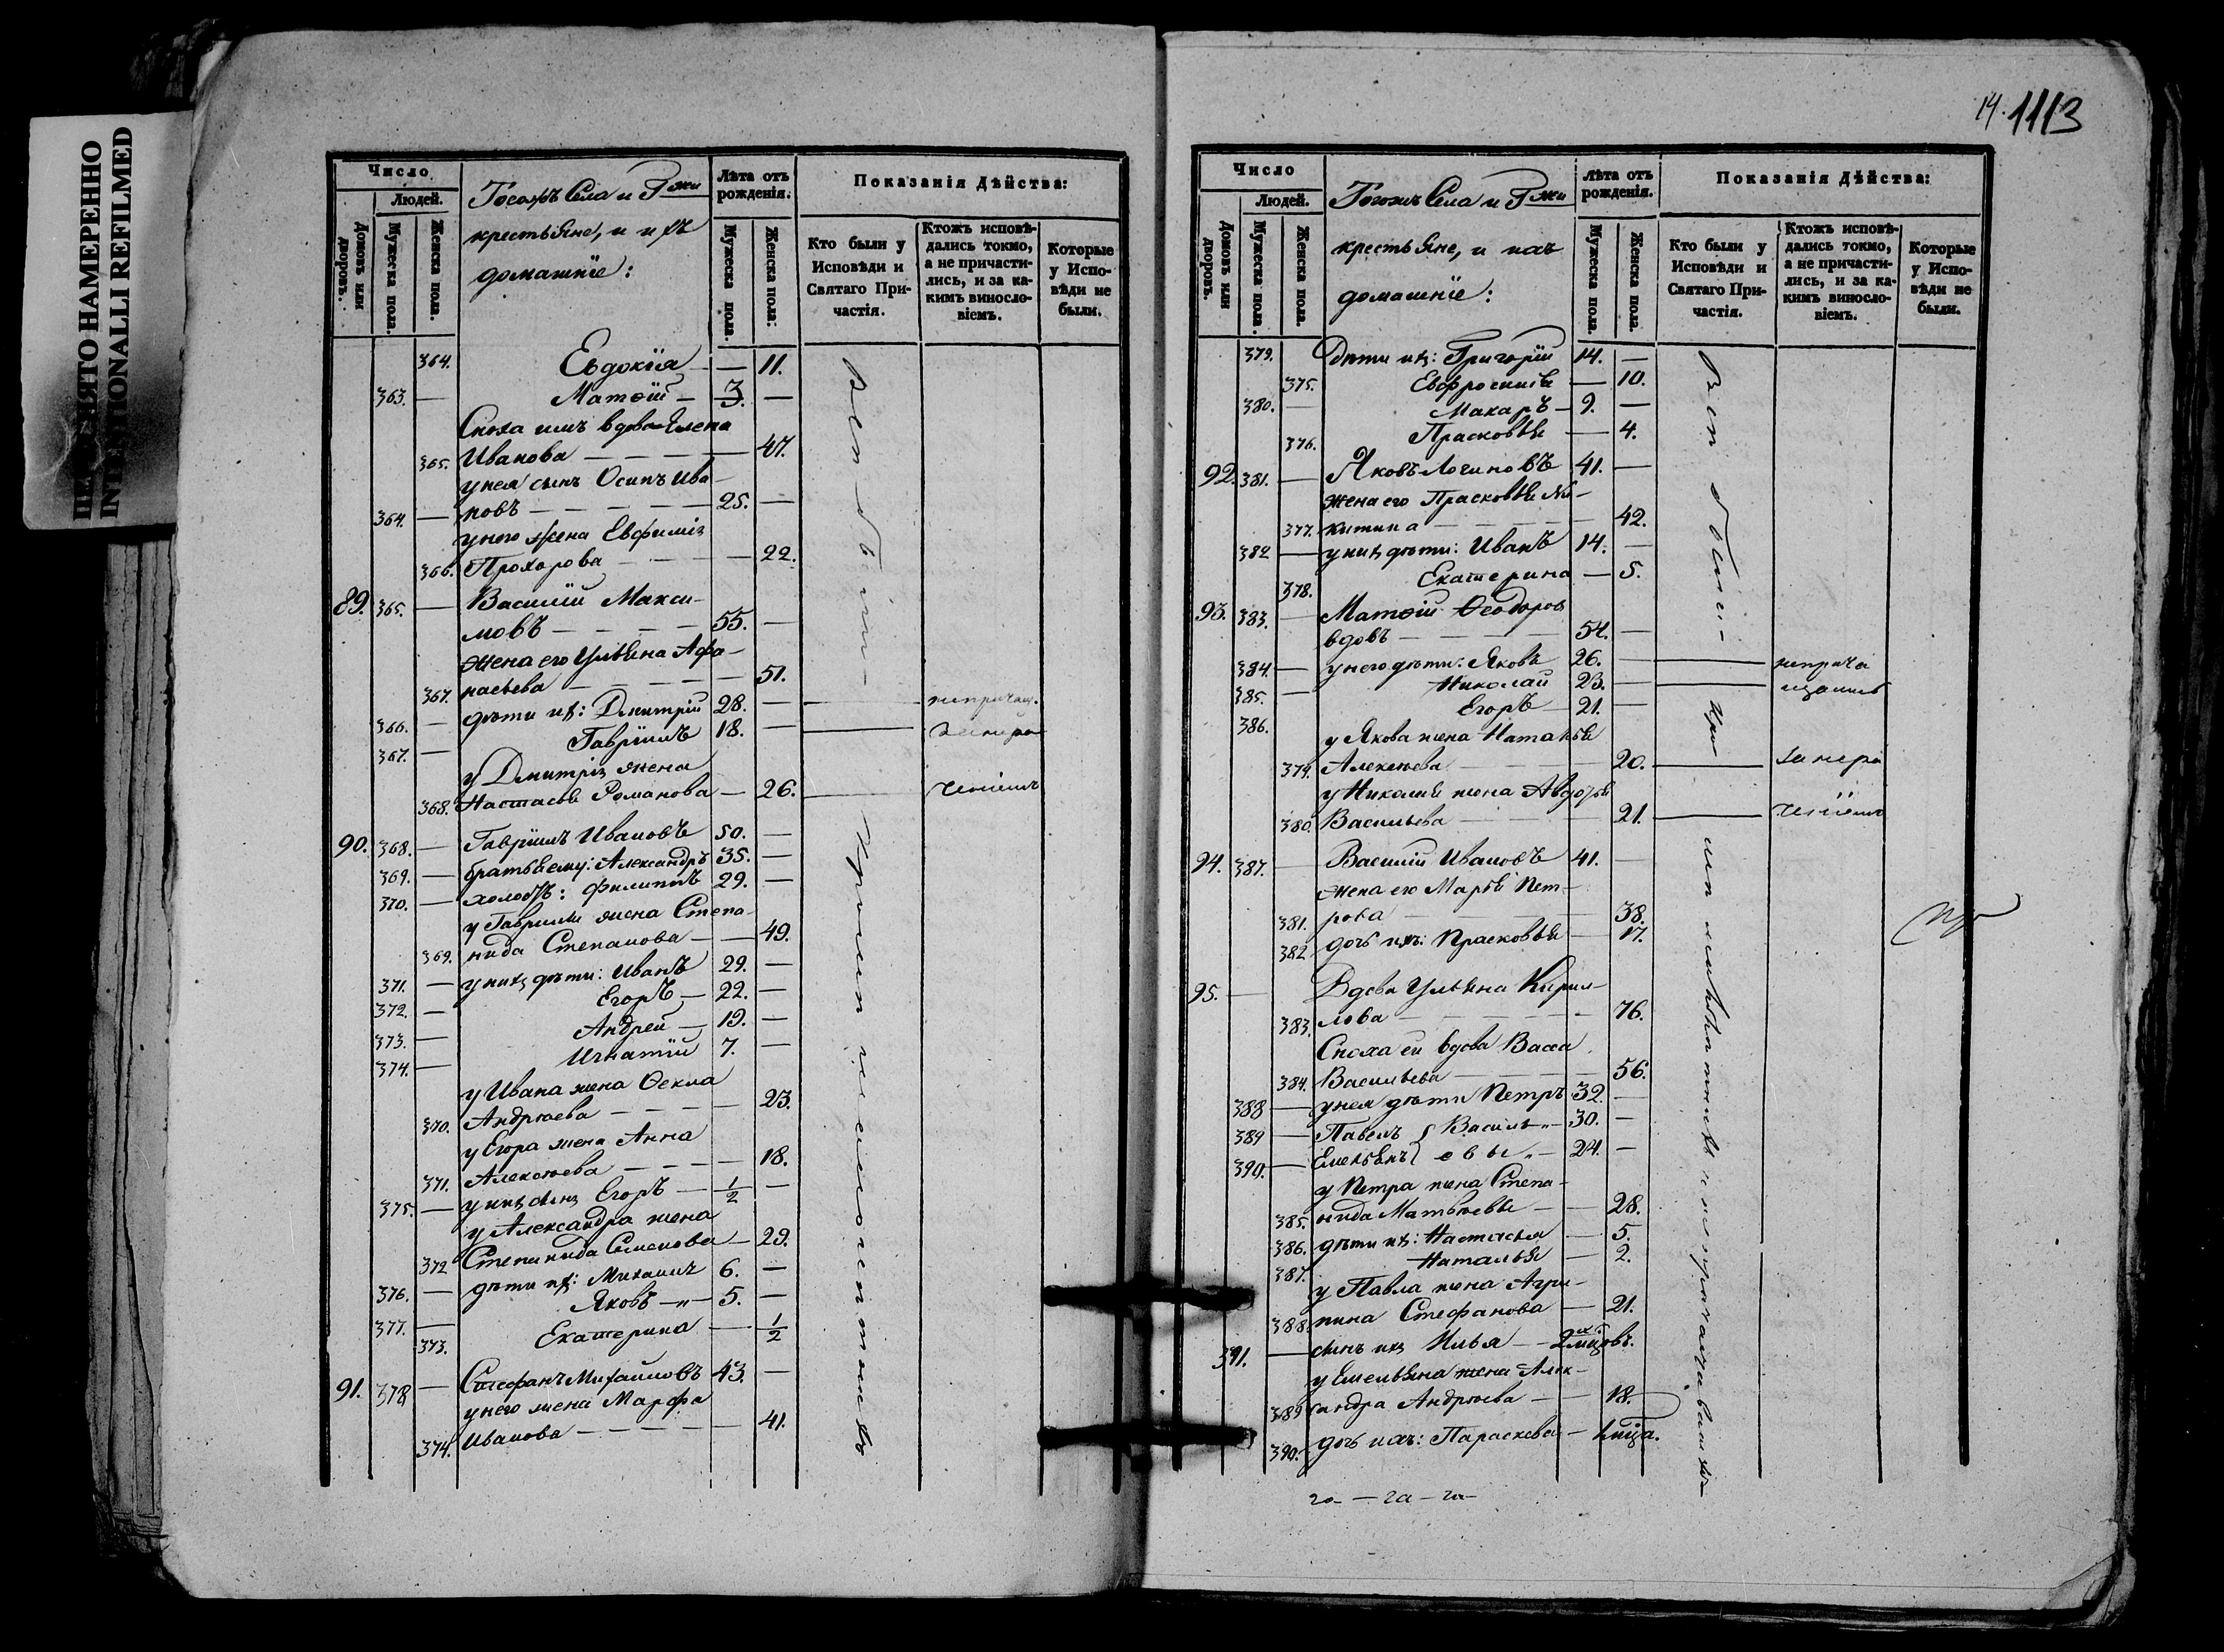 НАМЕРЕННО
INTENTIONALLI REFILMED
14. 1113
Число
Людей.
Домовъ или дворовъ.
Мужеска пола.
Женска пола.
Тогожъ Села и Г жи
крестьяне, и ихъ
домашнїе:
Лѣта отъ рожденія.
Мужеска пола.
Женска пола:
Показанія Дѣйства:
Кто были у Исповѣди и Святаго Причастія.
Ктожъ исповѣдались токмо, а не причастились, и за какимъ винословіемъ.
Которые у Исповѣди не были.
364. Евдокїя — 11.
363. — Матѳій — 3. —
Сноха имъ вдова Елена
365. Иванова — 47.
у нея сынъ Осипъ Ива-
364. — новъ — 25. —
у него жена Евфимія
366. Прохорова — 22.
89. 365. — Василій Макси-
мовъ — 55. —
жена его Ульяна Афа-
367. насьева — 51.
366. — дѣти их: Дмитрій 28. —
367. — Гавріилъ 18. —
у Дмитрія жена
368. Настасья Романова — 26.
90. 368. — Гавріилъ Ивановъ 50. —
369. — братья ему: Александръ 35. —
370. — холостъ: Филиппъ 29. —
у Гавриила жена Степа-
369. нида Степанова — 49.
371. — у них дѣти: Иванъ 29. —
372. — Егоръ — 22. —
373. — Андрей — 19. —
374. — Игнатїй 7. —
у Ивана жена Ѳекла
370. Андрѣева — 23.
у Егора жена Анна
371. Алексѣева — 18.
375. — у них сынъ Егоръ — 1/2 —
у Александра жена
372 Степанида Семенова — 29.
376. — дѣти их: Михаилъ 6. —
377. — Яковъ —"— 5. —
373. Екатерина — 1/2
91. 378 — Стефанъ Михайловъ 43. —
у него жена Марфа
374. Иванова — 41.
Число
Людей.
Домовъ или дворовъ.
Мужеска пола.
Женска пола.
Тогожъ Села и Г жи
крестьяне, и ихъ
домашнїе:
Лѣта отъ рожденія.
Мужеска пола.
Женска пола.
Показанія Дѣйства:
Кто были у Исповѣди и Святаго Причастія.
Ктожъ исповѣдались токмо, а не причастились, и за какимъ винословіемъ.
Которые у Исповѣди не были.
379. Дѣти их: Григорїй 14. —
375. Евфросинія — 10.
380. — Макаръ — 9. —
376. Прасковья — 4.
92. 381. — Яковъ Логиновъ 41. —
жена его Прасковья Ни-
377. китина — 42.
382 — у них дѣти: Иванъ 14. —
378. Екатерина — 5.
93. 383. — Матѳій Ѳеодоров
вдовъ — 54. —
384. — у него дѣти: Яковъ 26. —
385. — Николай 23. —
386. Егоръ — 21. —
у Якова жена Наталья
379. Алексѣева — 20.
у Николая жена Авдотья
380. Васильева — 21.
94. 387. — Василій Ивановъ 41. —
жена его Марья Пет-
381. рова — 38.
382 дочь ихъ: Прасковья — 17.
95. — Вдова Ульяна Кирил-
383. лова — 76.
Сноха ей вдова Васса
384. Васильева — 56.
388 — у нея дѣти Петръ 32. —
389 — Павелъ } Василь"— 30. —
390. — Емельянъ} евы "— 24. —
у Петра жена Степа-
385. нида Матвѣева — 28.
386. дѣти их: Настасья — 5.
387. Наталья — 2.
у Павла жена Агри-
388. пина Стефанова — 21.
391. — сынъ их Илья — 2 мцовъ.
у Емельяна жена Алек-
389 сандра Андрѣева — 18.
390. дочь ихъ: Параскева — 1 мца.